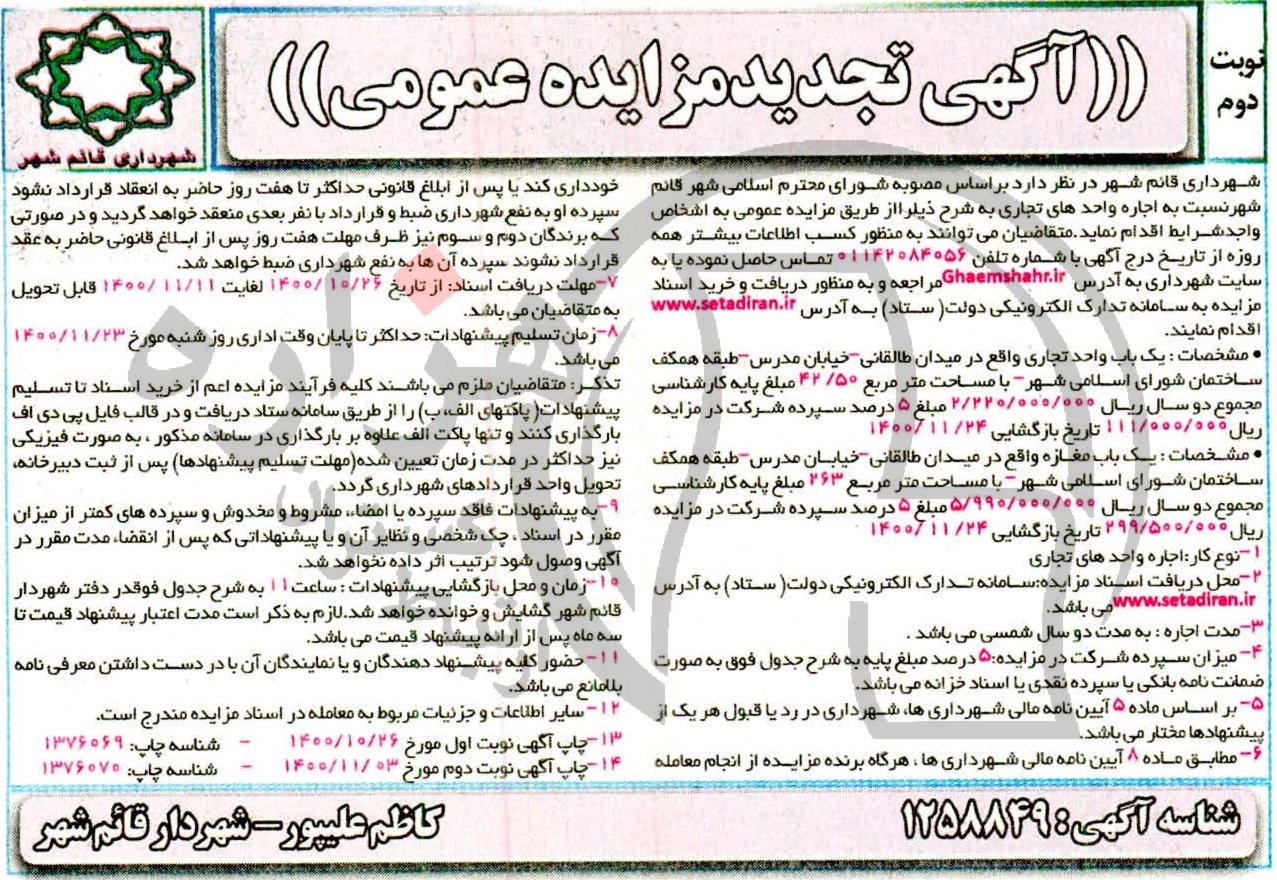 نوبت
دوم
((آگهی تجدید مزایده عمومی))
شهرداری قائم شهر
شهرداری قائم شهر در نظر دارد براساس مصوبه شورای محترم اسلامی شهر قائم
شهرنسبت به اجاره واحد های تجاری به شرح ذیلرااز طریق مزایده عمومی به اشخاص
واجدشرایط اقدام نماید.متقاضیان می توانند به منظور کسب اطلاعات بیشتر همه
روزه از تاریخ درج آگهی با شماره تلفن ۰۱۱۴۲۰۸۴۰۵۶ تماس حاصل نموده یا به
سایت شهرداری به آدرس Ghaemshahr.ir مراجعه و به منظور دریافت و خرید اسناد
مزایده به سامانه تدارک الکترونیکی دولت( ستاد) به آدرس www.setadiran.ir
اقدام نمایند.
• مشخصات : یک باب واحد تجاری واقع در میدان طالقانی-خیابان مدرس-طبقه همکف
ساختمان شورای اسلامی شهر- با مساحت متر مربع ۴۲/۵۰ مبلغ پایه کارشناسی
مجموع دو سال ریال ۲/۲۲۰/۰۰۰/۰۰۰ مبلغ ۵ درصد سپرده شرکت در مزایده
ریال ۱۱۱/۰۰۰/۰۰۰ تاریخ بازگشایی ۱۴۰۰/۱۱/۲۴
• مشخصات : یک باب مغازه واقع در میدان طالقانی-خیابان مدرس-طبقه همکف
ساختمان شورای اسلامی شهر- با مساحت متر مربع ۲۶۳ مبلغ پایه کارشناسی
مجموع دو سال ریال ۵/۹۹۰/۰۰۰/۰۰۰ مبلغ ۵ درصد سپرده شرکت در مزایده
ریال ۲۹۹/۵۰۰/۰۰۰ تاریخ بازگشایی ۱۴۰۰/۱۱/۲۴
۱-نوع کار:اجاره واحد های تجاری
۲-محل دریافت اسناد مزایده:سامانه تدارک الکترونیکی دولت( ستاد) به آدرس
www.setadiran.ir می باشد.
۳-مدت اجاره : به مدت دو سال شمسی می باشد .
۴- میزان سپرده شرکت در مزایده:۵ درصد مبلغ پایه به شرح جدول فوق به صورت
ضمانت نامه بانکی یا سپرده نقدی یا اسناد خزانه می باشد.
۵- بر اساس ماده ۵ آیین نامه مالی شهرداری ها، شهرداری در رد یا قبول هر یک از
پیشنهادها مختار می باشد.
۶- مطابق ماده ۸ آیین نامه مالی شهرداری ها ، هرگاه برنده مزایده از انجام معامله
خودداری کند یا پس از ابلاغ قانونی حداکثر تا هفت روز حاضر به انعقاد قرارداد نشود
سپرده او به نفع شهرداری ضبط و قرارداد با نفر بعدی منعقد خواهد گردید و در صورتی
که برندگان دوم و سوم نیز ظرف مهلت هفت روز پس از ابلاغ قانونی حاضر به عقد
قرارداد نشوند سپرده آن ها به نفع شهرداری ضبط خواهد شد.
۷-مهلت دریافت اسناد: از تاریخ ۱۴۰۰/۱۰/۲۶ لغایت ۱۴۰۰/۱۱/۱۱ قابل تحویل
به متقاضیان می باشد.
۸-زمان تسلیم پیشنهادات: حداکثر تا پایان وقت اداری روز شنبه مورخ ۱۴۰۰/۱۱/۲۳
می باشد.
تذکر: متقاضیان ملزم می باشند کلیه فرآیند مزایده اعم از خرید اسناد تا تسلیم
پیشنهادات( پاکتهای الف، ب) را از طریق سامانه ستاد دریافت و در قالب فایل پی دی اف
بارگذاری کنند و تنها پاکت الف علاوه بر بارگذاری در سامانه مذکور ، به صورت فیزیکی
نیز حداکثر در مدت زمان تعیین شده(مهلت تسلیم پیشنهادها) پس از ثبت دبیرخانه،
تحویل واحد قراردادهای شهرداری گردد.
۹-به پیشنهادات فاقد سپرده یا امضاء، مشروط و مخدوش و سپرده های کمتر از میزان
مقرر در اسناد ، چک شخصی و نظایر آن و یا پیشنهاداتی که پس از انقضاء مدت مقرر در
آگهی وصول شود ترتیب اثر داده نخواهد شد.
۱۰-زمان و محل بازگشایی پیشنهادات : ساعت ۱۱ به شرح جدول فوقدر دفتر شهردار
قائم شهر گشایش و خوانده خواهد شد.لازم به ذکر است مدت اعتبار پیشنهاد قیمت تا
سه ماه پس از ارائه پیشنهاد قیمت می باشد.
۱۱- حضور کلیه پیشنهاد دهندگان و یا نمایندگان آن با در دست داشتن معرفی نامه
بلامانع می باشد.
۱۲- سایر اطلاعات و جزئیات مربوط به معامله در اسناد مزایده مندرج است.
۱۳-چاپ آگهی نوبت اول مورخ ۱۴۰۰/۱۰/۲۶ - شناسه چاپ: ۱۳۷۶۰۶۹
۱۴-چاپ آگهی نوبت دوم مورخ ۱۴۰۰/۱۱/۰۳ - شناسه چاپ: ۱۳۷۶۰۷۰
شناسه آگهی: ۱۲۵۸۸۴۹
کاظم علیپور-شهردار قائم شهر